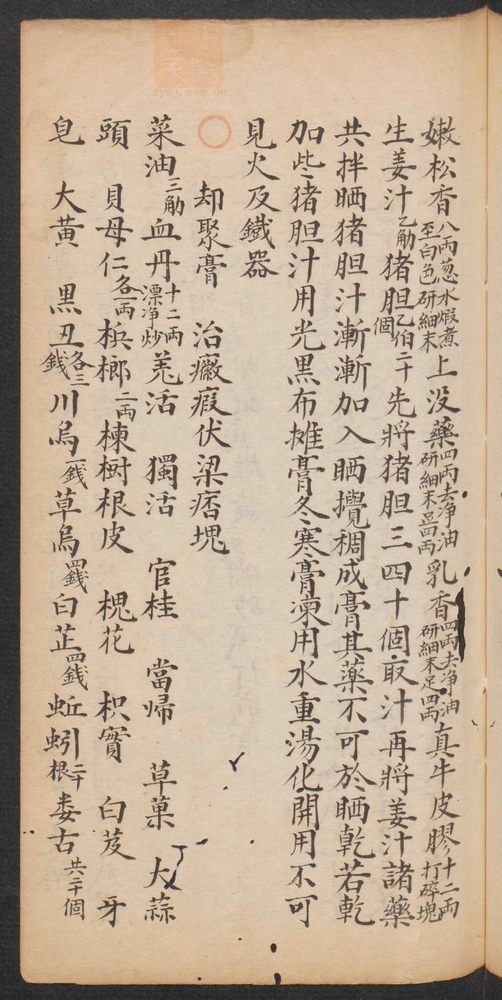 嫩松香八両葱水煆煮至白色研細末上没藥四両去净油研細末足四両乳香四両去净油研細末足四両真牛皮膠十二両打碎塊
生姜汁乙觔猪胆乙伯二十個先將猪胆三四十個取汁再將姜汁諸藥
共拌晒猪胆汁漸漸加入晒攪稠成膏其藥不可於晒乾若乾
加些猪胆汁用光黑布摊膏冬寒膏凍用水重湯化開用不可
見火及鐵器
○ 却聚膏 治癥瘕伏梁痞塊
菜油三觔血丹十二両漂净炒羗活 獨活 官桂 當帰 草菓 大蒜
頭 貝母仁各一両梹榔二両楝树根皮 槐花 枳實 白芨 牙
皂 大黄 黒丑各三錢川烏一錢草烏四錢白芷四錢蚯蚓二十根娄古共二十個